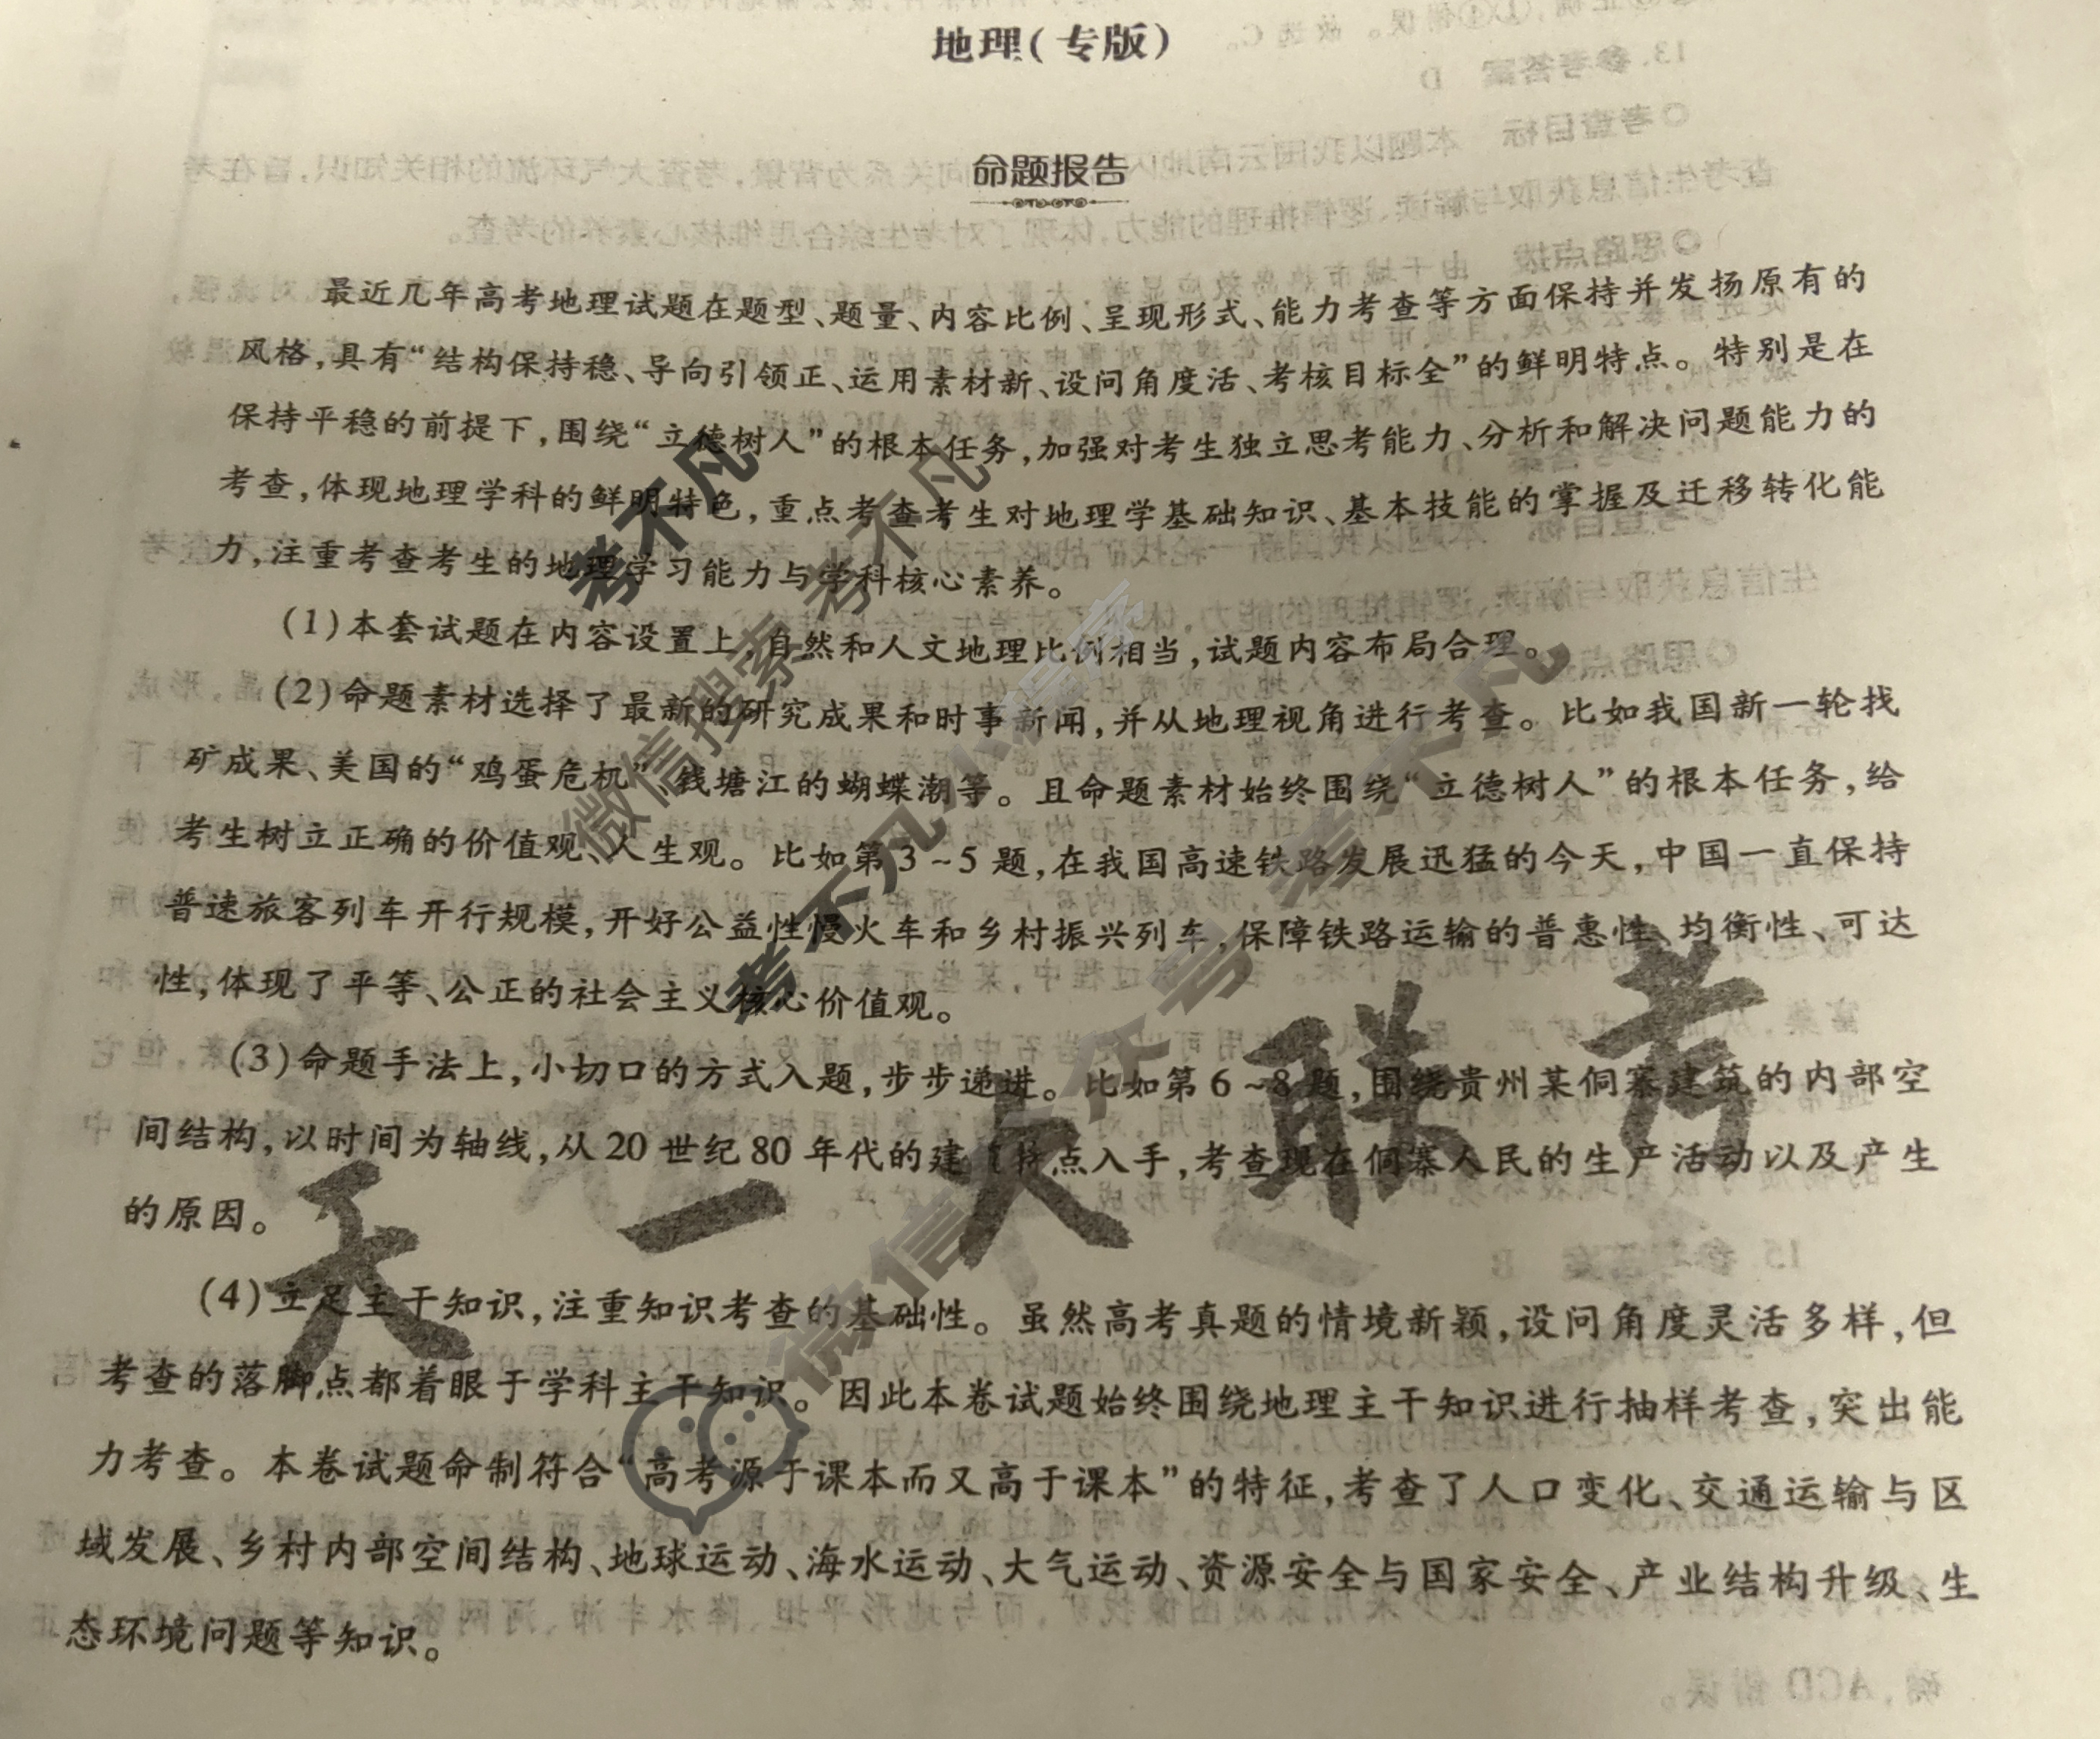 地理(专版)
命题报告
最近几年高考地理试题在题型、题量、内容比例、呈现形式、能力考查等方面保持并发扬原有的
风格,具有“结构保持稳、导向引领正、运用素材新、设问角度活、考核目标全”的鲜明特点。特别是在
保持平稳的前提下,围绕“立德树人”的根本任务,加强对考生独立思考能力、分析和解决问题能力的
考查,体现地理学科的鲜明特色,重点考查考生对地理学基础知识、基本技能的掌握及迁移转化能
力,注重考查考生的地理学习能力与学科核心素养。
(1)本套试题在内容设置上,自然和人文地理比例相当,试题内容布局合理。
(2)命题素材选择了最新的研究成果和时事新闻,并从地理视角进行考查。比如我国新一轮找
矿成果、美国的“鸡蛋危机”、钱塘江的蝴蝶潮等。且命题素材始终围绕“立德树人”的根本任务,给
考生树立正确的价值观、人生观。比如第3~5题,在我国高速铁路发展迅猛的今天,中国一直保持
普速旅客列车开行规模,开好公益性慢火车和乡村振兴列车,保障铁路运输的普惠性、均衡性、可达
性,体现了平等、公正的社会主义核心价值观。
(3)命题手法上,小切口的方式入题,步步递进。比如第6~8题,围绕贵州某侗寨建筑的内部空
间结构,以时间为轴线,从20世纪80年代的建筑特点入手,考查现在侗寨人民的生产活动以及产生
的原因。
(4)立足主干知识,注重知识考查的基础性。虽然高考真题的情境新颖,设问角度灵活多样,但
考查的落脚点都着眼于学科主干知识。因此本卷试题始终围绕地理主干知识进行抽样考查,突出能
力考查。本卷试题命制符合“高考源于课本而又高于课本”的特征,考查了人口变化、交通运输与区
域发展、乡村内部空间结构、地球运动、海水运动、大气运动、资源安全与国家安全、产业结构升级、生
态环境问题等知识。
天一大联考
考不凡
微信搜索 考不凡
考不凡小程序
微信公众号 考不凡